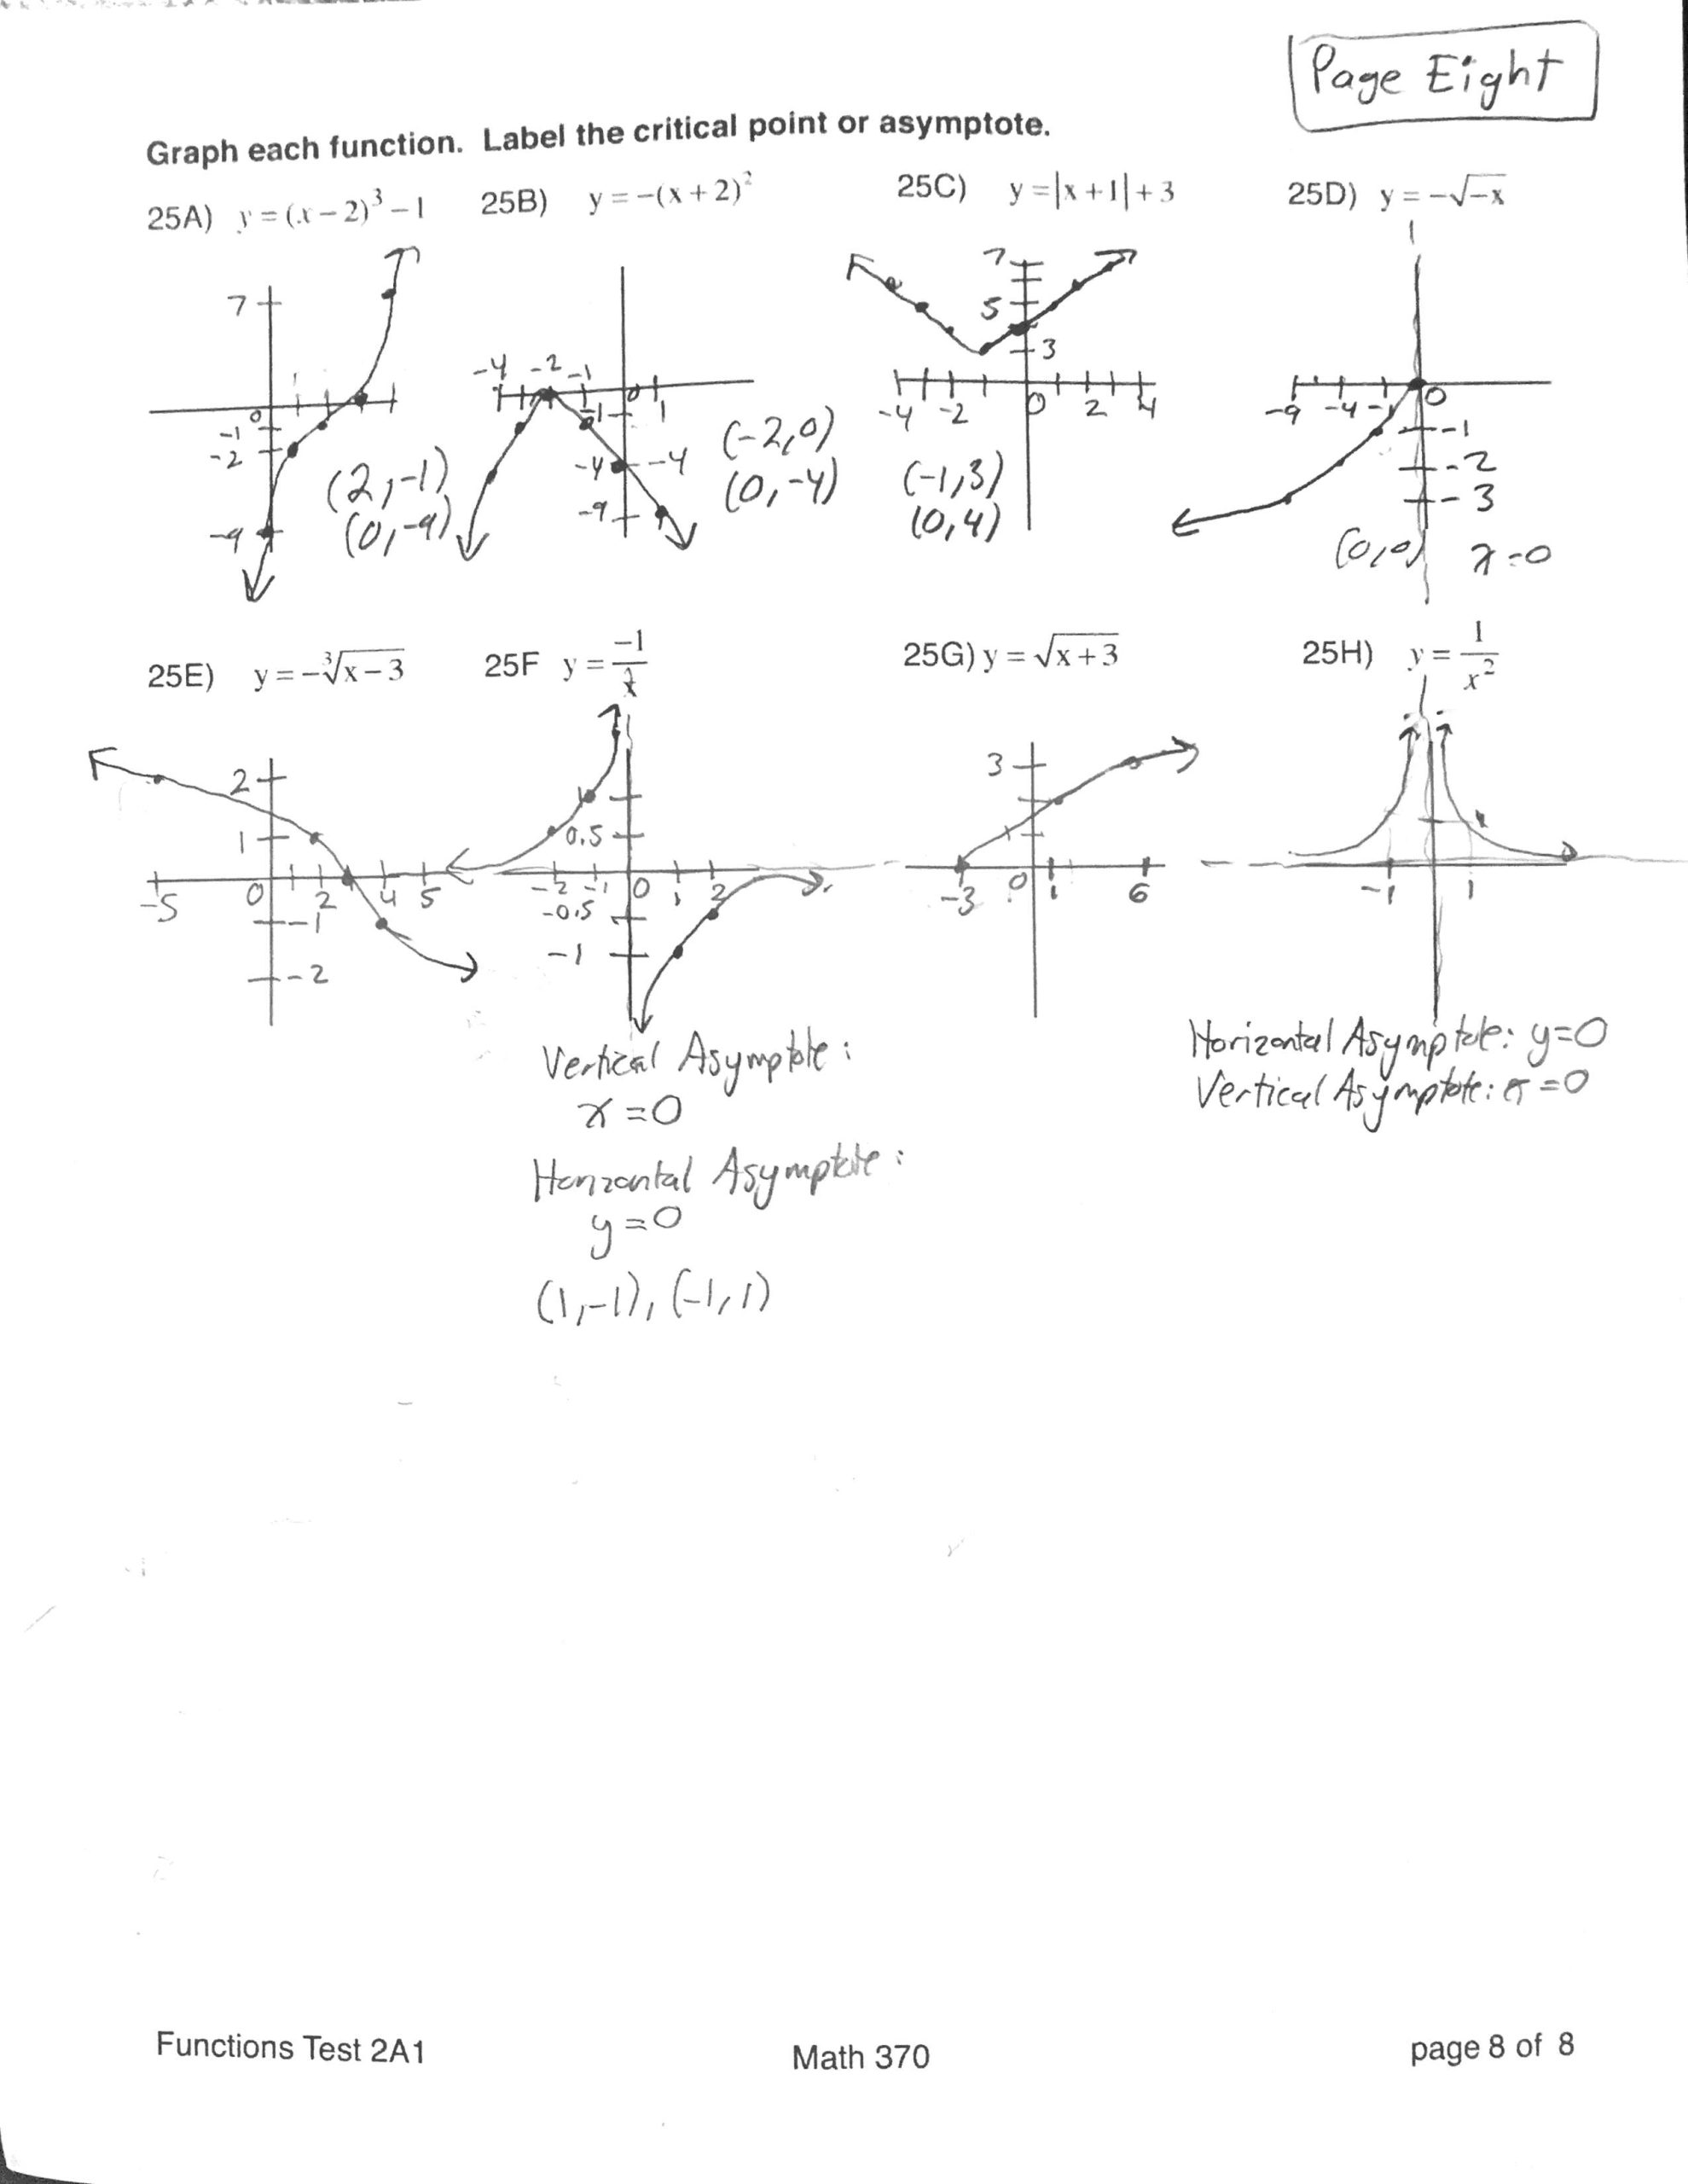 Page Eight
Graph each function. Label the critical point or asymptote.
25A) y = (x − 2)³ − 1 25B) y = −(x + 2)² 25C) y = |x + 1| + 3 25D) y = −√−x
7
0
-1
-2
-9
(2,-1)
(0,-9)
-4 -2 -1
0 1
-1
-4 -4
-9
(-2,0)
(0,-4)
7
5
3
-4 -2 0 2 4
(-1,3)
(0,4)
-9 -4 -1 0
-1
-2
-3
(0,0) x=0
25E) y = −∛x − 3 25F y = −1/x 25G) y = √x + 3 25H) y = 1/x²
2
1
-5 0 2 4 5
-1
-2
0.5
-2 -1 0 1 2
-0.5
-1
3
-3 0 1 6
-1 1
Vertical Asymptote:
x=0
Horizontal Asymptote:
y=0
(1,-1), (-1,1)
Horizontal Asymptote: y=0
Vertical Asymptote: x=0
Functions Test 2A1 Math 370 page 8 of 8